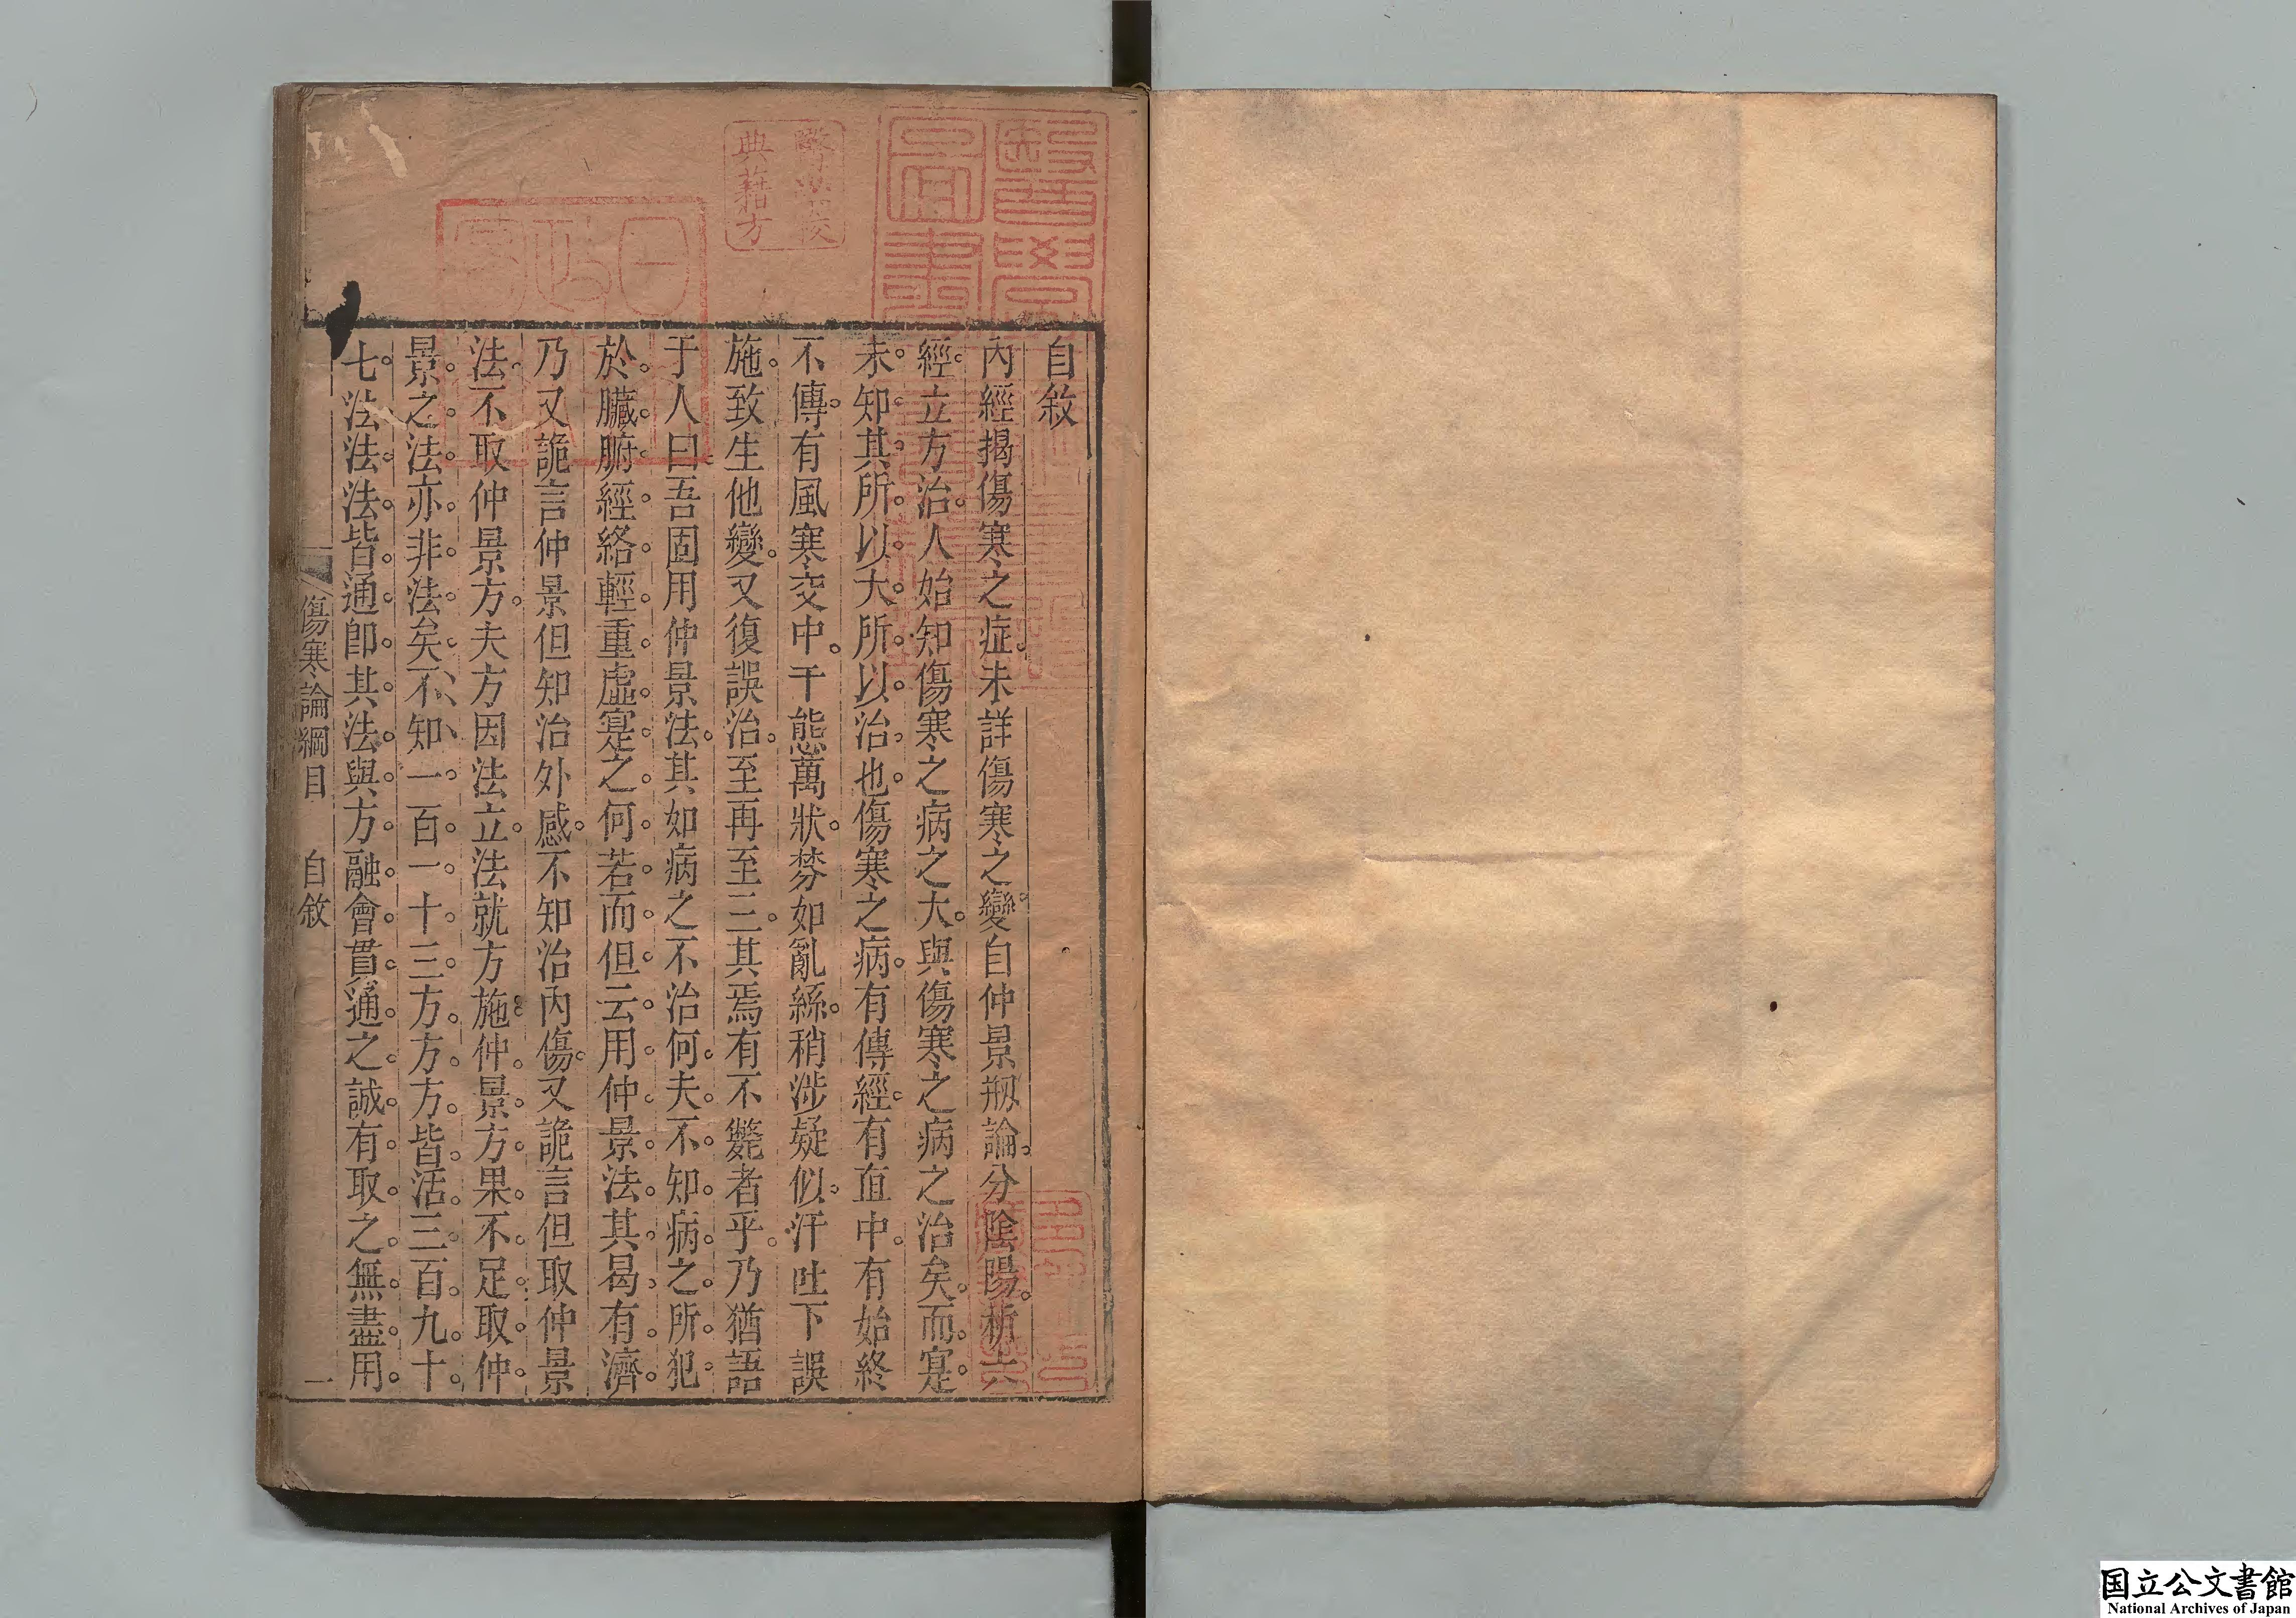 自敘
內經揭傷寒之症。未詳傷寒之變。自仲景剏論。分陰陽。析六
經。立方治。人始知傷寒之病之大。與傷寒之病之治矣。而寔
未知其所以大。所以治也。傷寒之病。有傳經。有直中。有始終
不傳。有風寒交中。千態萬狀。棼如亂絲。稍涉疑似。汗吐下誤
施。致生他變。又復誤治。至再至三。其焉有不斃者乎。乃猶語
于人曰吾固用仲景法。其如病之不治何。夫不知病之所犯
於臟腑經絡輕重虛寔之何若。而但云用仲景法。其曷有濟。
乃又詭言仲景但知治外感。不知治內傷。又詭言但取仲景
法。不取仲景方。夫方因法立。法就方施。仲景方果不足取。仲
景之法亦非法矣。不知一百一十三方。方方皆活。三百九十
七法。法法皆通。即其法與方。融會貫通之。誠有取之無盡。用
傷寒論綱目　自敘　一
醫學圖書
典籍方
国立公文書館
National Archives of Japan